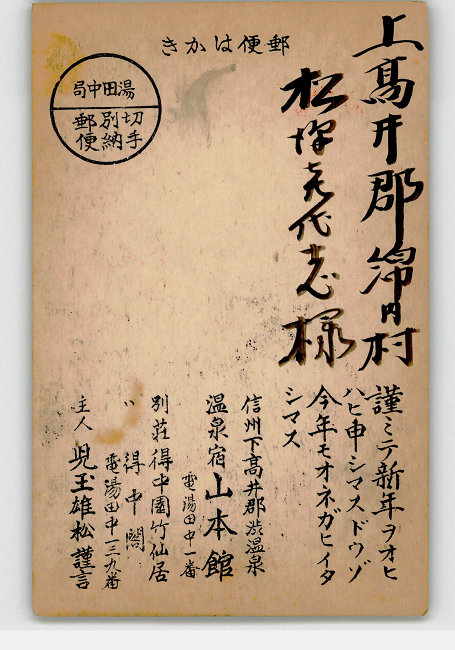 郵便はかき
湯田中局
切手
別納
郵便
上髙井郡綿内村
松澤㐂代志様
謹ミテ新年ヲオヒ
ハヒ申シマスドウゾ
今年モオネガヒイタ
シマス
信州下高井郡渋温泉
温泉宿 山本館
電湯田中一番
別荘 得中園竹仙居
〃 得中閣
電湯田中一三九番
主人 児玉雄松謹言